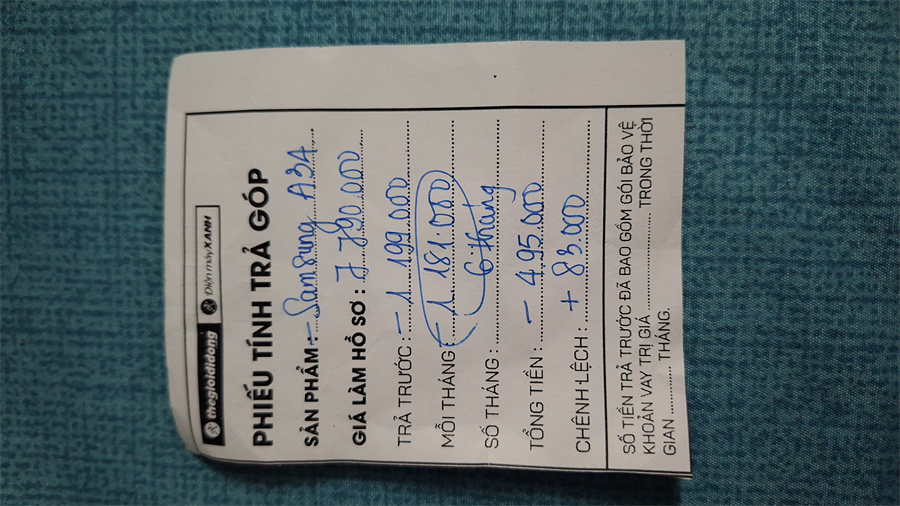 thegioididong Điện máy XANH
PHIẾU TÍNH TRẢ GÓP
SẢN PHẨM: - Samsung A34
GIÁ LÀM HỒ SƠ : 7 790.000
TRẢ TRƯỚC : - 1 199.000
MỖI THÁNG : - 1 181.000
SỐ THÁNG : 6 tháng
TỔNG TIỀN : - 495.000
CHÊNH LỆCH : + 83.000
SỐ TIỀN TRẢ TRƯỚC ĐÃ BAO GỒM GÓI BẢO VỆ
KHOẢN VAY TRỊ GIÁ .................. TRONG THỜI
GIAN ............ THÁNG.